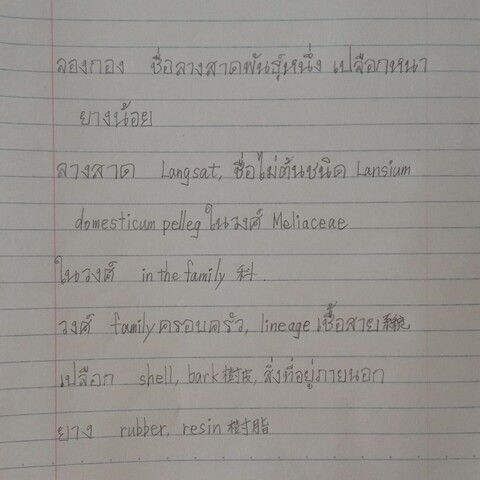 ลองกอง ชื่อลางสาดพันธุ์หนึ่ง เปลือกหนา
ยางน้อย
ลางสาด Langsat, ชื่อไม้ต้นชนิด Lansium
domesticum pelleg ในวงศ์ Meliaceae
ในวงศ์ in the family 科.
วงศ์ family ครอบครัว, lineage เชื้อสาย
เปลือก shell, bark 樹皮, สิ่งที่อยู่ภายนอก
ยาง rubber, resin 樹脂